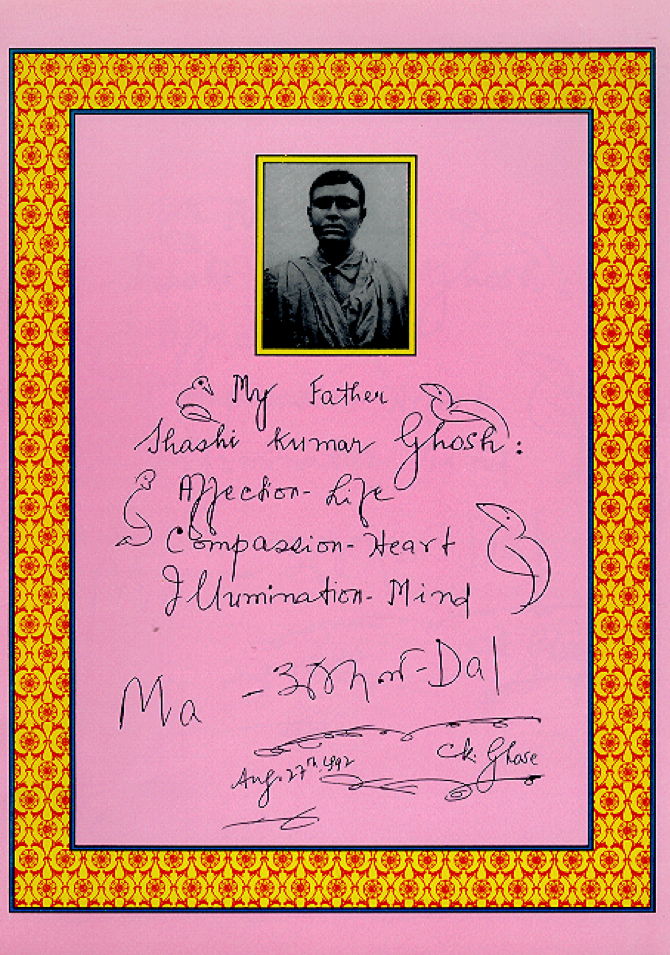 My Father
Shashi Kumar Ghosh:
Affection-Life
Compassion-Heart
Illumination-Mind
Ma - -Dal
Aug. 27th, 1992
CK. Ghose